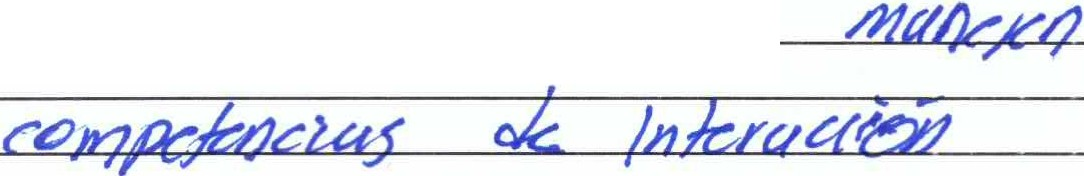 manejen
competencias de Interación